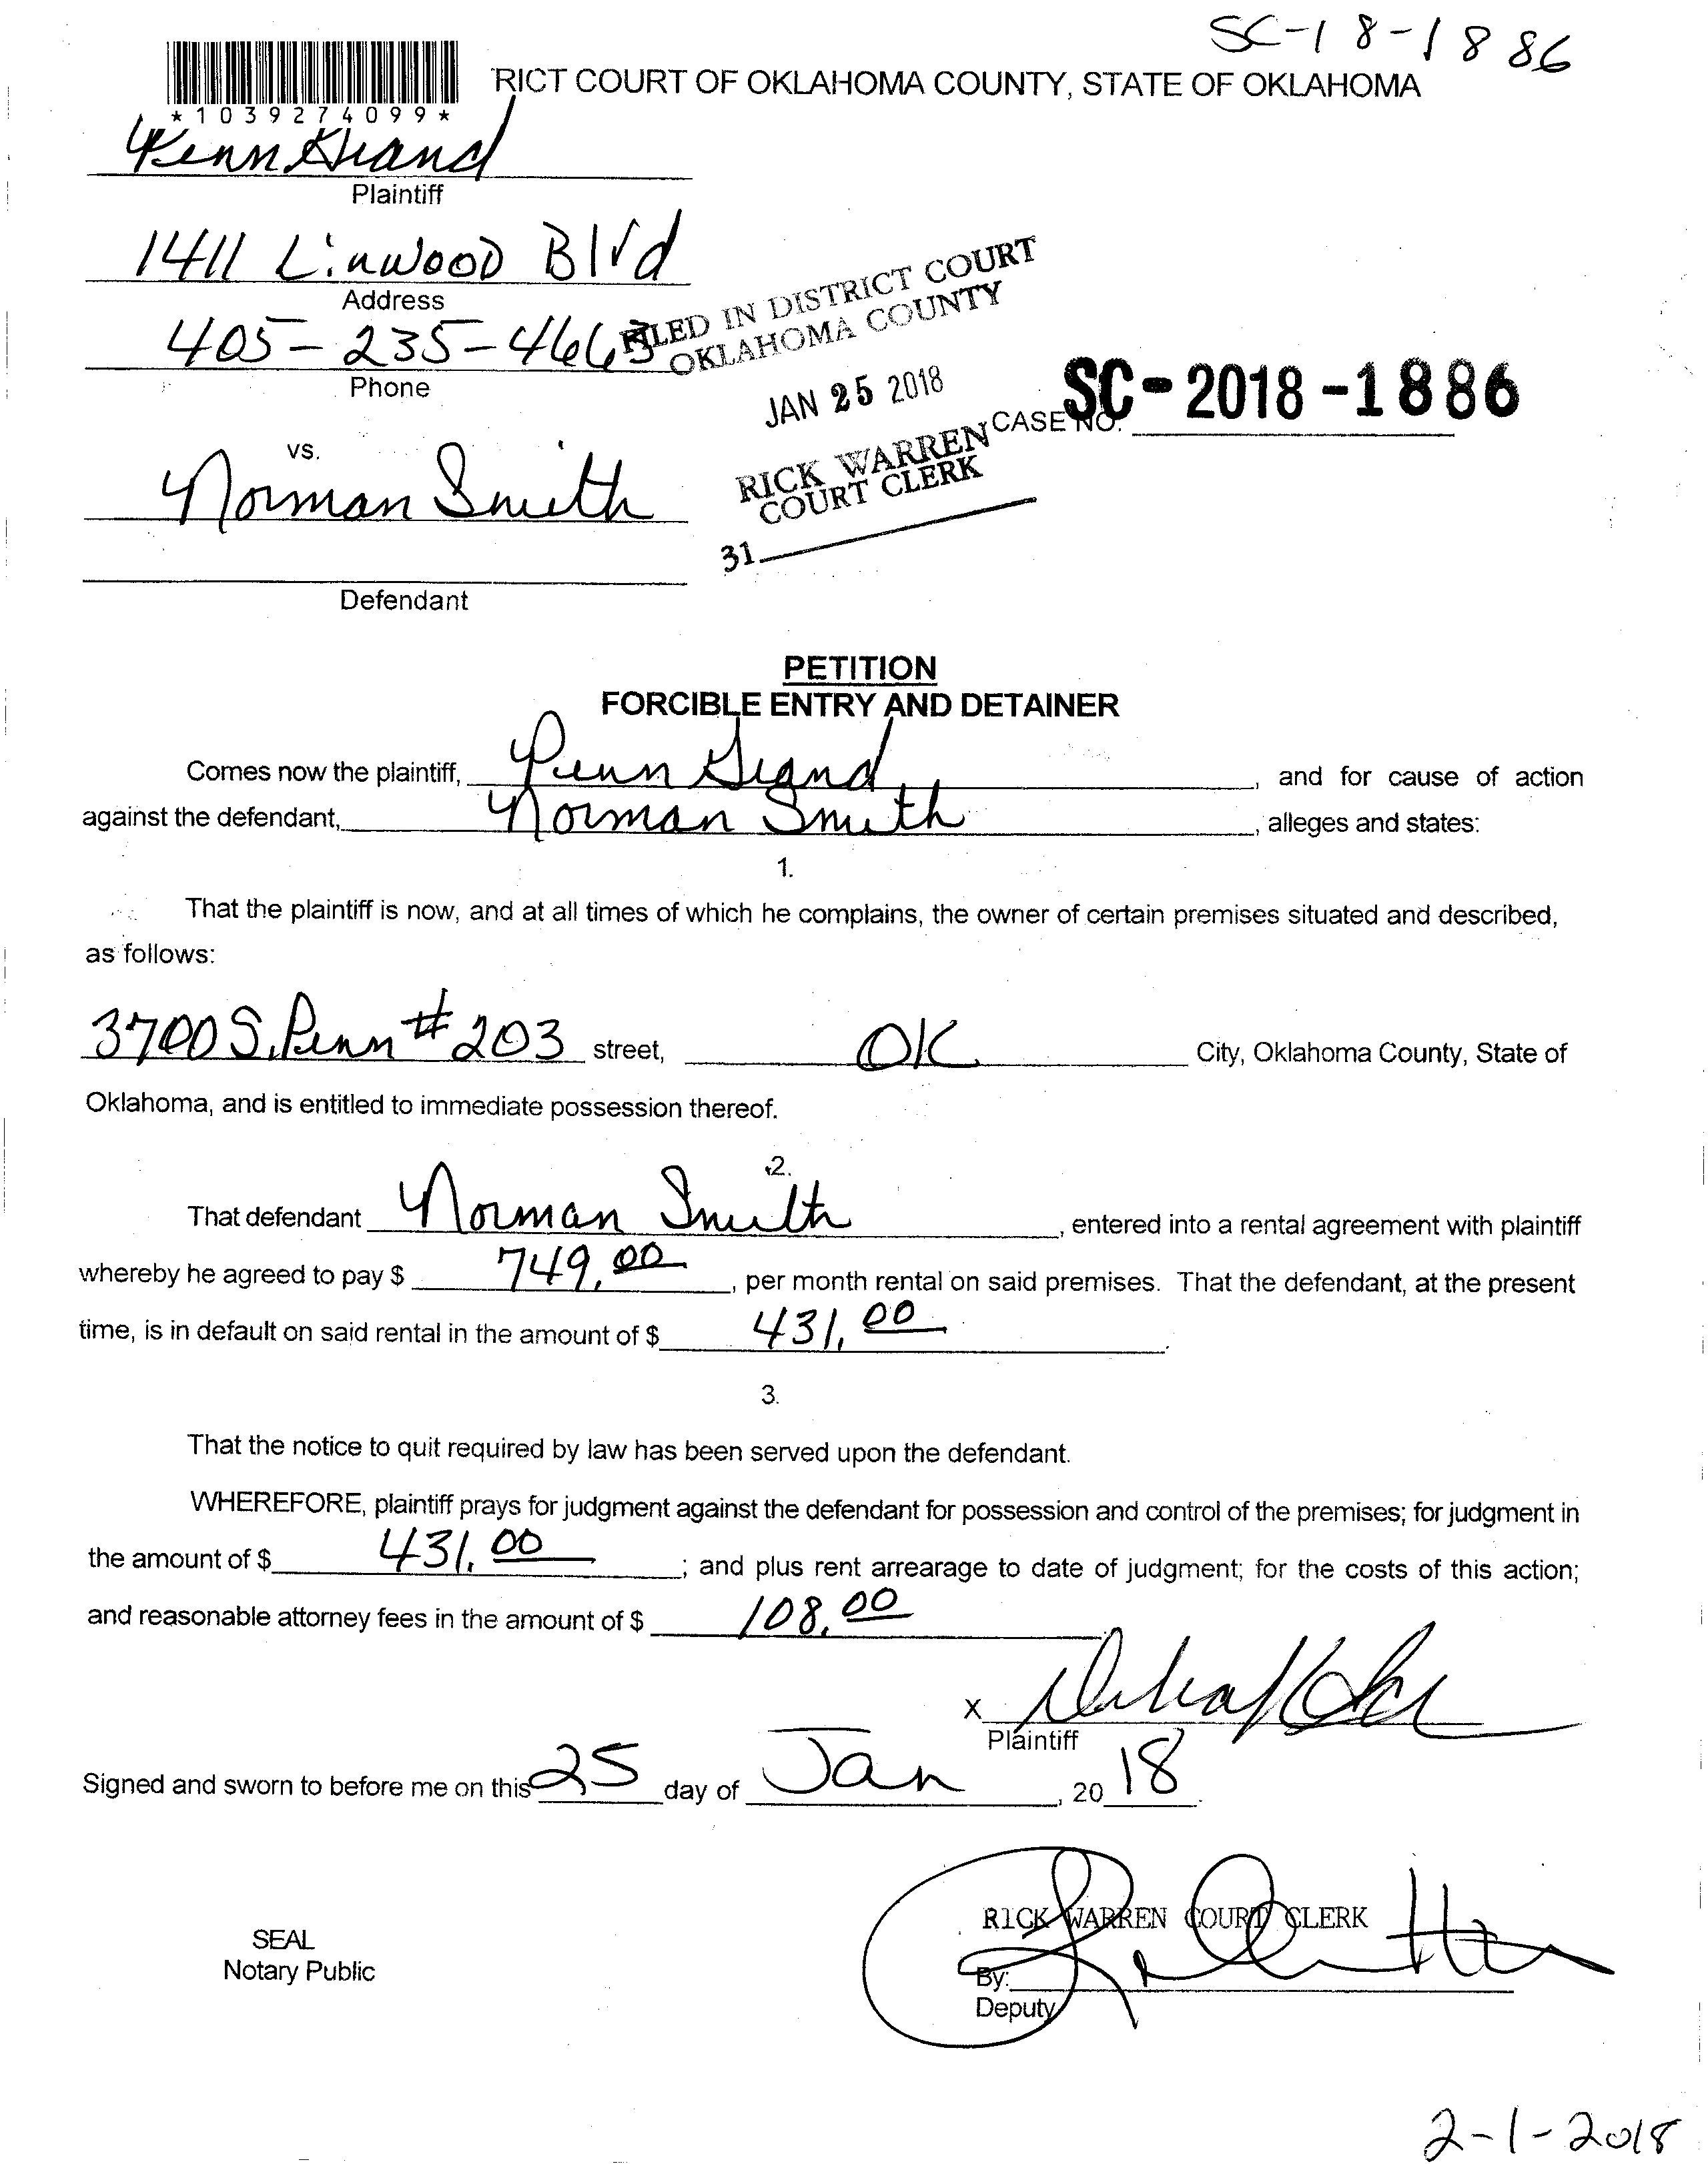 SC-18-1886
RICT COURT OF OKLAHOMA COUNTY, STATE OF OKLAHOMA
*1039274099*
Penn Grand
Plaintiff
1411 Linwood Blvd
Address
405-235-4663
Phone
FILED IN DISTRICT COURT
OKLAHOMA COUNTY
JAN 25 2018
RICK WARREN
COURT CLERK
31
CASE NO. SC-2018-1886
vs.
Norman Smith
Defendant
PETITION
FORCIBLE ENTRY AND DETAINER
Comes now the plaintiff, Penn Grand, and for cause of action
against the defendant, Norman Smith, alleges and states:
1.
That the plaintiff is now, and at all times of which he complains, the owner of certain premises situated and described,
as follows:
3700 S. Penn #203 street, OK City, Oklahoma County, State of
Oklahoma, and is entitled to immediate possession thereof.
2.
That defendant Norman Smith, entered into a rental agreement with plaintiff
whereby he agreed to pay $ 749.00, per month rental on said premises. That the defendant, at the present
time, is in default on said rental in the amount of $ 431.00.
3.
That the notice to quit required by law has been served upon the defendant.
WHEREFORE, plaintiff prays for judgment against the defendant for possession and control of the premises; for judgment in
the amount of $ 431.00; and plus rent arrearage to date of judgment; for the costs of this action;
and reasonable attorney fees in the amount of $ 108.00
X
Plaintiff
Signed and sworn to before me on this 25 day of Jan, 2018.
RICK WARREN COURT CLERK
SEAL
Notary Public
By:
Deputy
2-1-2018